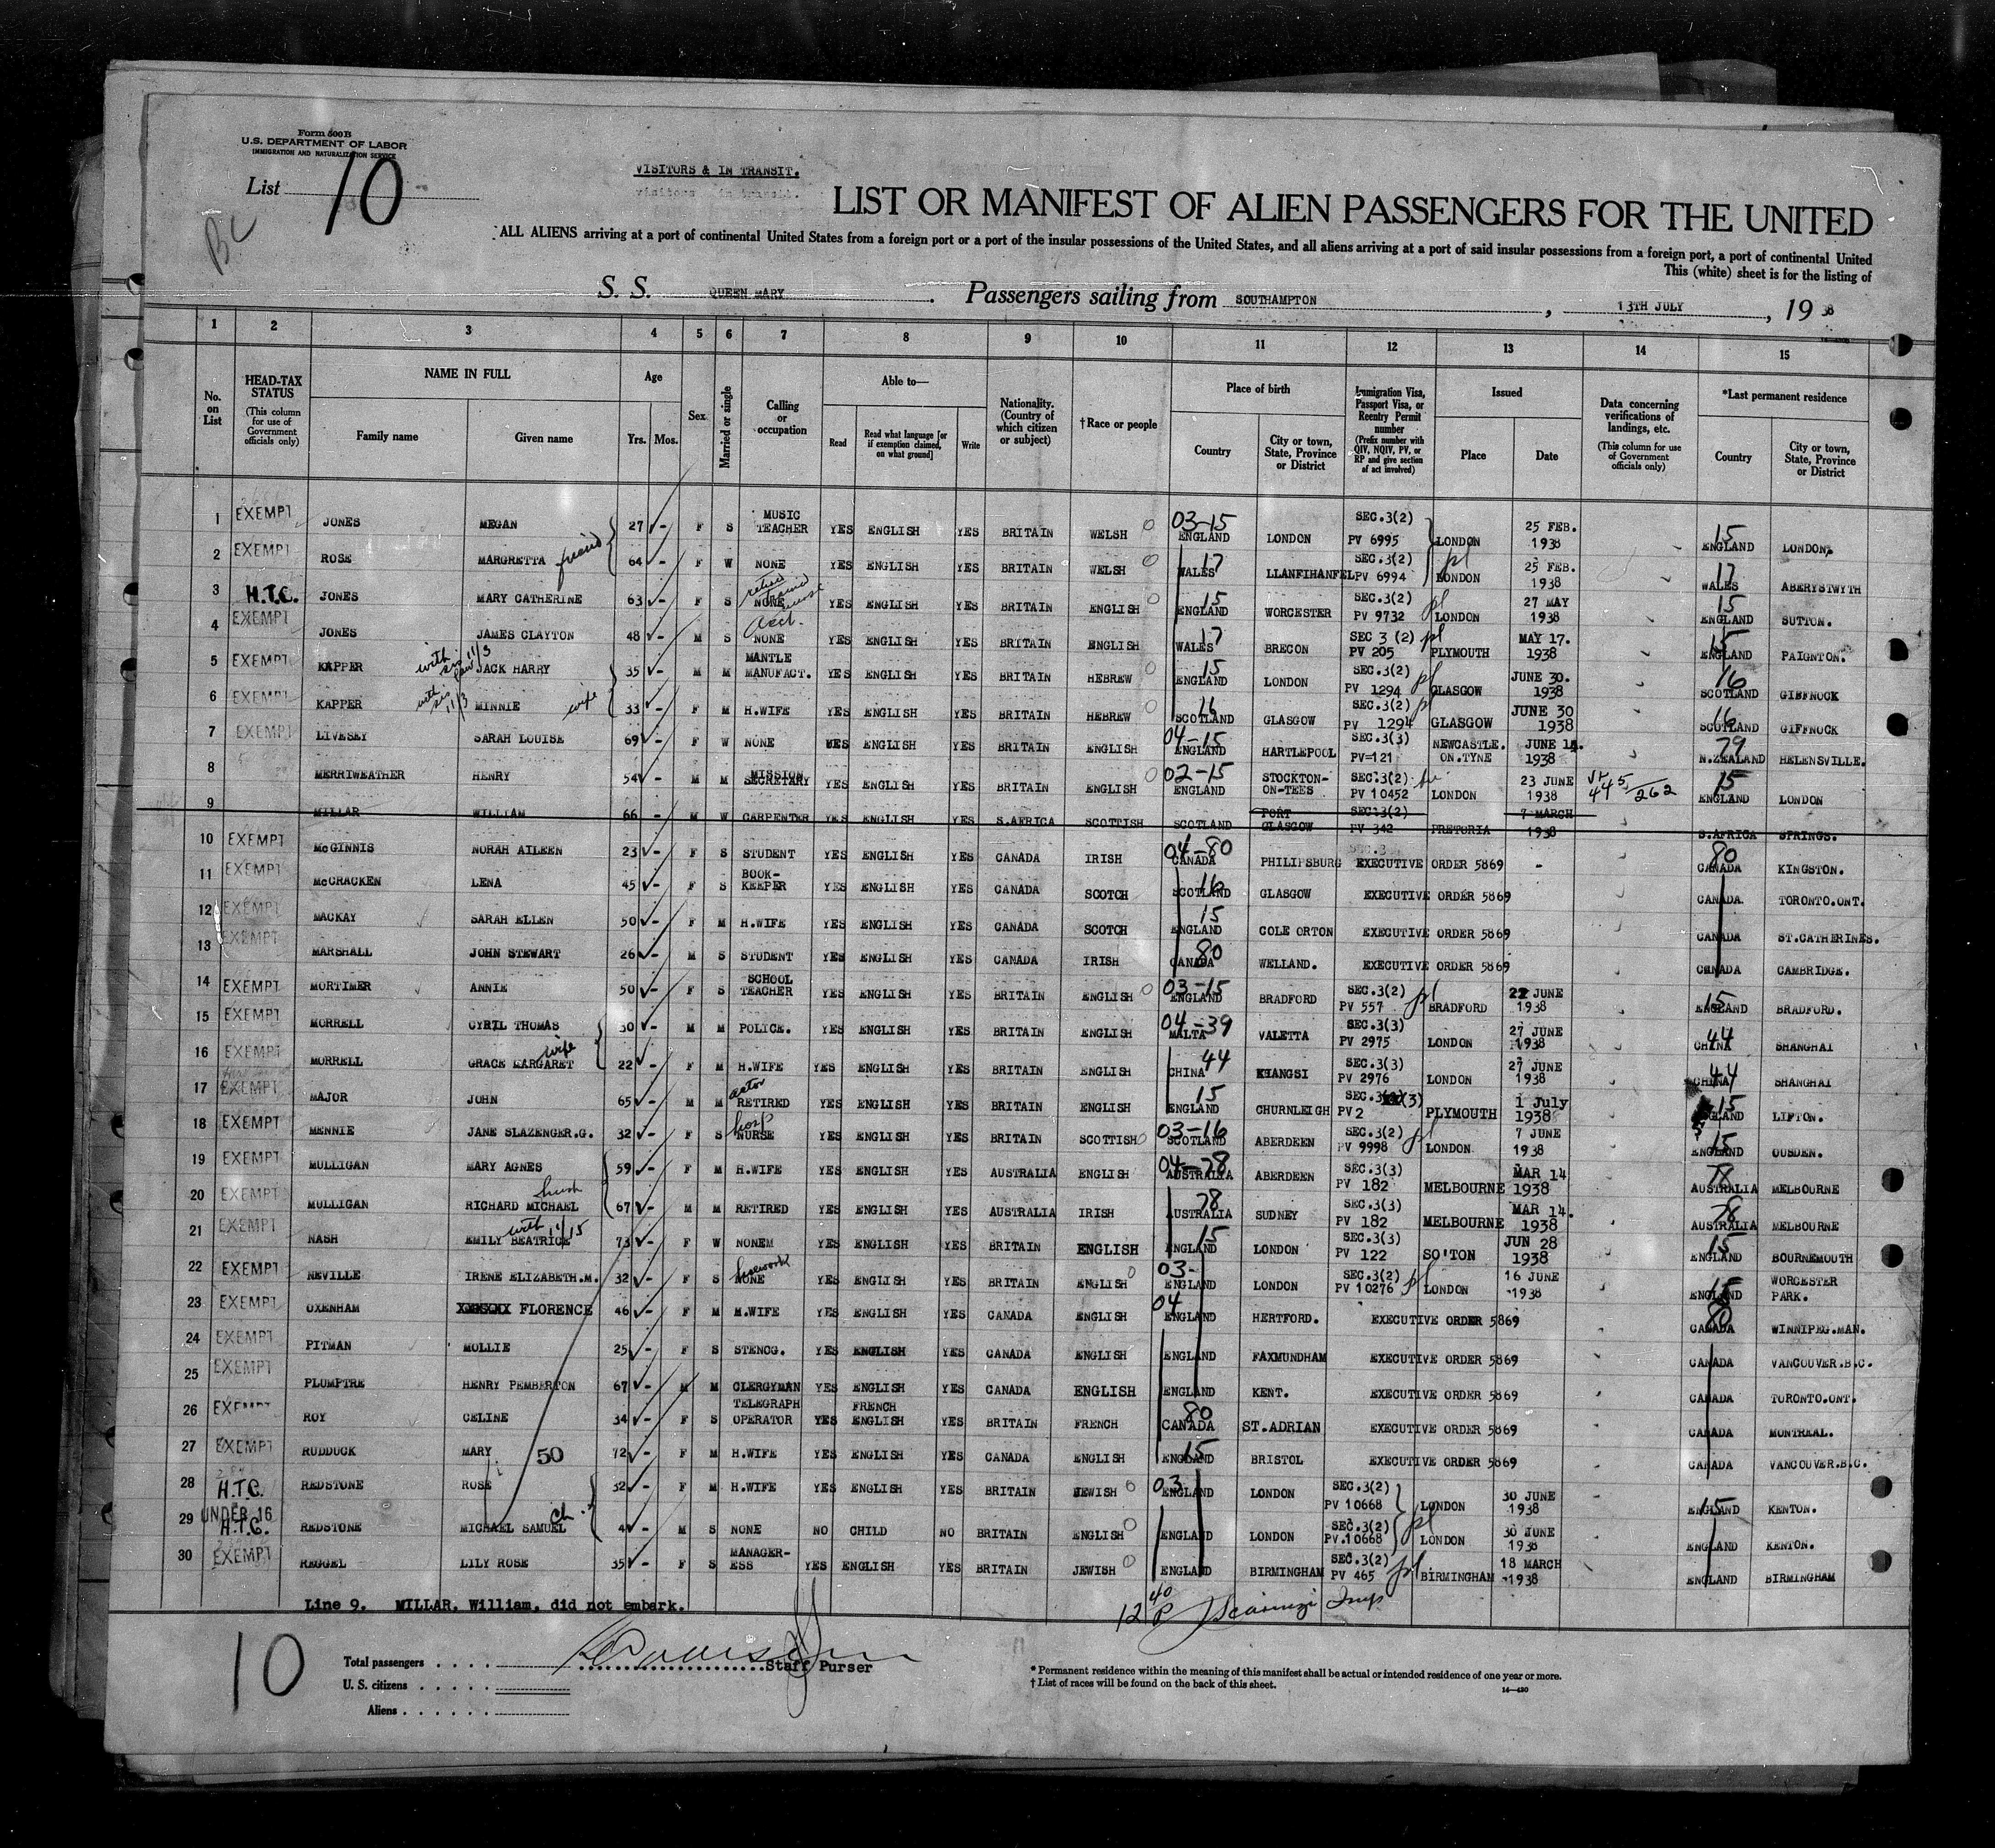 Form 500B
U.S. DEPARTMENT OF LABOR
IMMIGRATION AND NATURALIZATION SERVICE
List 10
VISITORS & IN TRANSIT.
LIST OR MANIFEST OF ALIEN PASSENGERS FOR THE UNITED
ALL ALIENS arriving at a port of continental United States from a foreign port or a port of the insular possessions of the United States, and all aliens arriving at a port of said insular possessions from a foreign port, a port of continental United
This (white) sheet is for the listing of
S. S. QUEEN MARY. Passengers sailing from SOUTHAMPTON, 13TH JULY, 1938
1 2 3 4 5 6 7 8 9 10 11 12 13 14 15
No. on List | HEAD-TAX STATUS (This column for use of Government officials only) | NAME IN FULL Family name Given name | Age Yrs. Mos. | Sex | Married or single | Calling or occupation | Able to— Read Read what language [or if exemption claimed, on what ground] Write | Nationality. (Country of which citizen or subject) | †Race or people | Place of birth Country City or town, State, Province or District | Immigration Visa, Passport Visa, or Reentry Permit number (Prefix number with QIV, NQIV, PV, or RP and give section of act involved) | Issued Place Date | Data concerning verifications of landings, etc. (This column for use of Government officials only) | *Last permanent residence Country City or town, State, Province or District
1 EXEMPT JONES MEGAN 27 - F S MUSIC TEACHER YES ENGLISH YES BRITAIN WELSH 03-15 ENGLAND LONDON SEC.3(2) PV 6995 LONDON 25 FEB. 1938 15 ENGLAND LONDON
2 EXEMPT ROSE MARGRETTA friend 64 - F W NONE YES ENGLISH YES BRITAIN WELSH 17 WALES LLANFIHANFEL SEC.3(2) PV 6994 LONDON 25 FEB. 1938 17 WALES ABERYSTWYTH
3 H.T.C. JONES MARY CATHERINE 63 - F S NONE retired trained nurse YES ENGLISH YES BRITAIN ENGLISH 15 ENGLAND WORCESTER SEC.3(2) PV 9732 LONDON 27 MAY 1938 15 ENGLAND SUTTON.
4 EXEMPT JONES JAMES CLAYTON 48 - M S acct. NONE YES ENGLISH YES BRITAIN ENGLISH 17 WALES BRECON SEC 3 (2) PV 205 PLYMOUTH MAY 17. 1938 15 ENGLAND PAIGNTON.
5 EXEMPT KAPPER JACK HARRY 35 - M M MANTLE MANUFACT. YES ENGLISH YES BRITAIN HEBREW 15 ENGLAND LONDON SEC.3(2) PV 1294 GLASGOW JUNE 30. 1938 16 SCOTLAND GIFFNOCK
6 EXEMPT KAPPER MINNIE wife 33 - F M H.WIFE YES ENGLISH YES BRITAIN HEBREW 16 SCOTLAND GLASGOW SEC.3(2) PV 1294 GLASGOW JUNE 30 1938 16 SCOTLAND GIFFNOCK
7 EXEMPT LIVESEY SARAH LOUISE 69 - F W NONE YES ENGLISH YES BRITAIN ENGLISH 04-15 ENGLAND HARTLEPOOL SEC.3(3) PV=121 NEWCASTLE. ON.TYNE JUNE 14. 1938 79 N.ZEALAND HELENSVILLE.
8 MERRIWEATHER HENRY 54 - M M MISSION SECRETARY YES ENGLISH YES BRITAIN ENGLISH 02-15 ENGLAND STOCKTON-ON-TEES SEC.3(2) PV 10452 LONDON 23 JUNE 1938 445/262 15 ENGLAND LONDON
9 MILLAR WILLIAM 66 - M W CARPENTER YES ENGLISH YES S.AFRICA SCOTTISH SCOTLAND PORT GLASGOW SEC.3(2) PV 342 PRETORIA 7 MARCH 1938 S.AFRICA SPRINGS.
10 EXEMPT McGINNIS NORAH AILEEN 23 - F S STUDENT YES ENGLISH YES CANADA IRISH 04-80 CANADA PHILIPSBURG EXECUTIVE ORDER 5869 - 80 CANADA KINGSTON.
11 EXEMPT McCRACKEN LENA 45 - F S BOOK-KEEPER YES ENGLISH YES CANADA SCOTCH 16 SCOTLAND GLASGOW EXECUTIVE ORDER 5869 CANADA. TORONTO.ONT.
12 EXEMPT MACKAY SARAH ELLEN 50 - F M H.WIFE YES ENGLISH YES CANADA SCOTCH 15 ENGLAND COLE ORTON EXECUTIVE ORDER 5869 CANADA ST.CATHERINES.
13 EXEMPT MARSHALL JOHN STEWART 26 - M S STUDENT YES ENGLISH YES CANADA IRISH 80 CANADA WELLAND. EXECUTIVE ORDER 5869 CANADA CAMBRIDGE.
14 EXEMPT MORTIMER ANNIE 50 - F S SCHOOL TEACHER YES ENGLISH YES BRITAIN ENGLISH 03-15 ENGLAND BRADFORD SEC.3(2) PV 557 BRADFORD 22 JUNE 1938 15 ENGLAND BRADFORD.
15 EXEMPT MORRELL CYRIL THOMAS 30 - M M POLICE. YES ENGLISH YES BRITAIN ENGLISH 04-39 MALTA VALETTA SEC.3(3) PV 2975 LONDON 27 JUNE 1938 44 CHINA SHANGHAI
16 EXEMPT MORRELL GRACE MARGARET wife 22 - F M H.WIFE YES ENGLISH YES BRITAIN ENGLISH 44 CHINA KIANGSI SEC.3(3) PV 2976 LONDON 27 JUNE 1938 44 CHINA SHANGHAI
17 EXEMPT MAJOR JOHN 65 - M M actor RETIRED YES ENGLISH YES BRITAIN ENGLISH 15 ENGLAND CHURNLEIGH SEC.3(3) PV 2 PLYMOUTH 1 July 1938 15 ENGLAND LIFTON.
18 EXEMPT MENNIE JANE SLAZENGER.G. 32 - F S hosp NURSE YES ENGLISH YES BRITAIN SCOTTISH 03-16 SCOTLAND ABERDEEN SEC.3(2) PV 9998 LONDON 7 JUNE 1938 15 ENGLAND OUSDEN.
19 EXEMPT MULLIGAN MARY AGNES 59 - F M H.WIFE YES ENGLISH YES AUSTRALIA ENGLISH 04-78 AUSTRALIA ABERDEEN SEC.3(3) PV 182 MELBOURNE MAR 14 1938 78 AUSTRALIA MELBOURNE
20 EXEMPT MULLIGAN RICHARD MICHAEL husb 67 - M M RETIRED YES ENGLISH YES AUSTRALIA IRISH 78 AUSTRALIA SUDNEY SEC.3(3) PV 182 MELBOURNE MAR 14. 1938 78 AUSTRALIA MELBOURNE
21 EXEMPT NASH EMILY BEATRICE with 11/15 73 - F W NONEM YES ENGLISH YES BRITAIN ENGLISH 15 ENGLAND LONDON SEC.3(3) PV 122 SO'TON JUN 28 1938 15 ENGLAND BOURNEMOUTH
22 EXEMPT NEVILLE IRENE ELIZABETH.M. 32 - F S NONE YES ENGLISH YES BRITAIN ENGLISH 03- ENGLAND LONDON SEC.3(2) PV 10276 LONDON 16 JUNE 1938 15 ENGLAND WORCESTER PARK.
23 EXEMPT OXENHAM FLORENCE 46 - F M H.WIFE YES ENGLISH YES CANADA ENGLISH 04 ENGLAND HERTFORD. EXECUTIVE ORDER 5869 80 CANADA WINNIPEG.MAN.
24 EXEMPT PITMAN MOLLIE 25 - F S STENOG. YES ENGLISH YES CANADA ENGLISH ENGLAND FAXMUNDHAM EXECUTIVE ORDER 5869 CANADA VANCOUVER.B.C.
25 EXEMPT PLUMPTRE HENRY PEMBERTON 67 - M M CLERGYMAN YES ENGLISH YES CANADA ENGLISH ENGLAND KENT. EXECUTIVE ORDER 5869 CANADA TORONTO.ONT.
26 EXEMPT ROY CELINE 34 - F S TELEGRAPH OPERATOR YES FRENCH ENGLISH YES BRITAIN FRENCH 80 CANADA ST.ADRIAN EXECUTIVE ORDER 5869 CANADA MONTREAL.
27 EXEMPT RUDDUCK MARY 50 72 - F M H.WIFE YES ENGLISH YES CANADA ENGLISH 15 ENGLAND BRISTOL EXECUTIVE ORDER 5869 CANADA VANCOUVER.B.C.
28 H.T.C. REDSTONE ROSE 32 - F M H.WIFE YES ENGLISH YES BRITAIN JEWISH 03 ENGLAND LONDON SEC.3(2) PV 10668 LONDON 30 JUNE 1938 15 ENGLAND KENTON.
29 UNDER 16 H.T.C. REDSTONE MICHAEL SAMUEL ch. 4 - M S NONE NO CHILD NO BRITAIN ENGLISH ENGLAND LONDON SEC.3(2) PV.10668 LONDON 30 JUNE 1938 ENGLAND KENTON.
30 EXEMPT REGGEL LILY ROSE 35 - F S MANAGER-ESS YES ENGLISH YES BRITAIN JEWISH ENGLAND BIRMINGHAM SEC.3(2) PV 465 BIRMINGHAM 18 MARCH 1938 ENGLAND BIRMINGHAM
Line 9. MILLAR, William, did not embark.
10
Total passengers . . . .
Staff Purser
U.S. citizens . . . . .
Aliens . . . . . .
* Permanent residence within the meaning of this manifest shall be actual or intended residence of one year or more.
† List of races will be found on the back of this sheet.
14—430